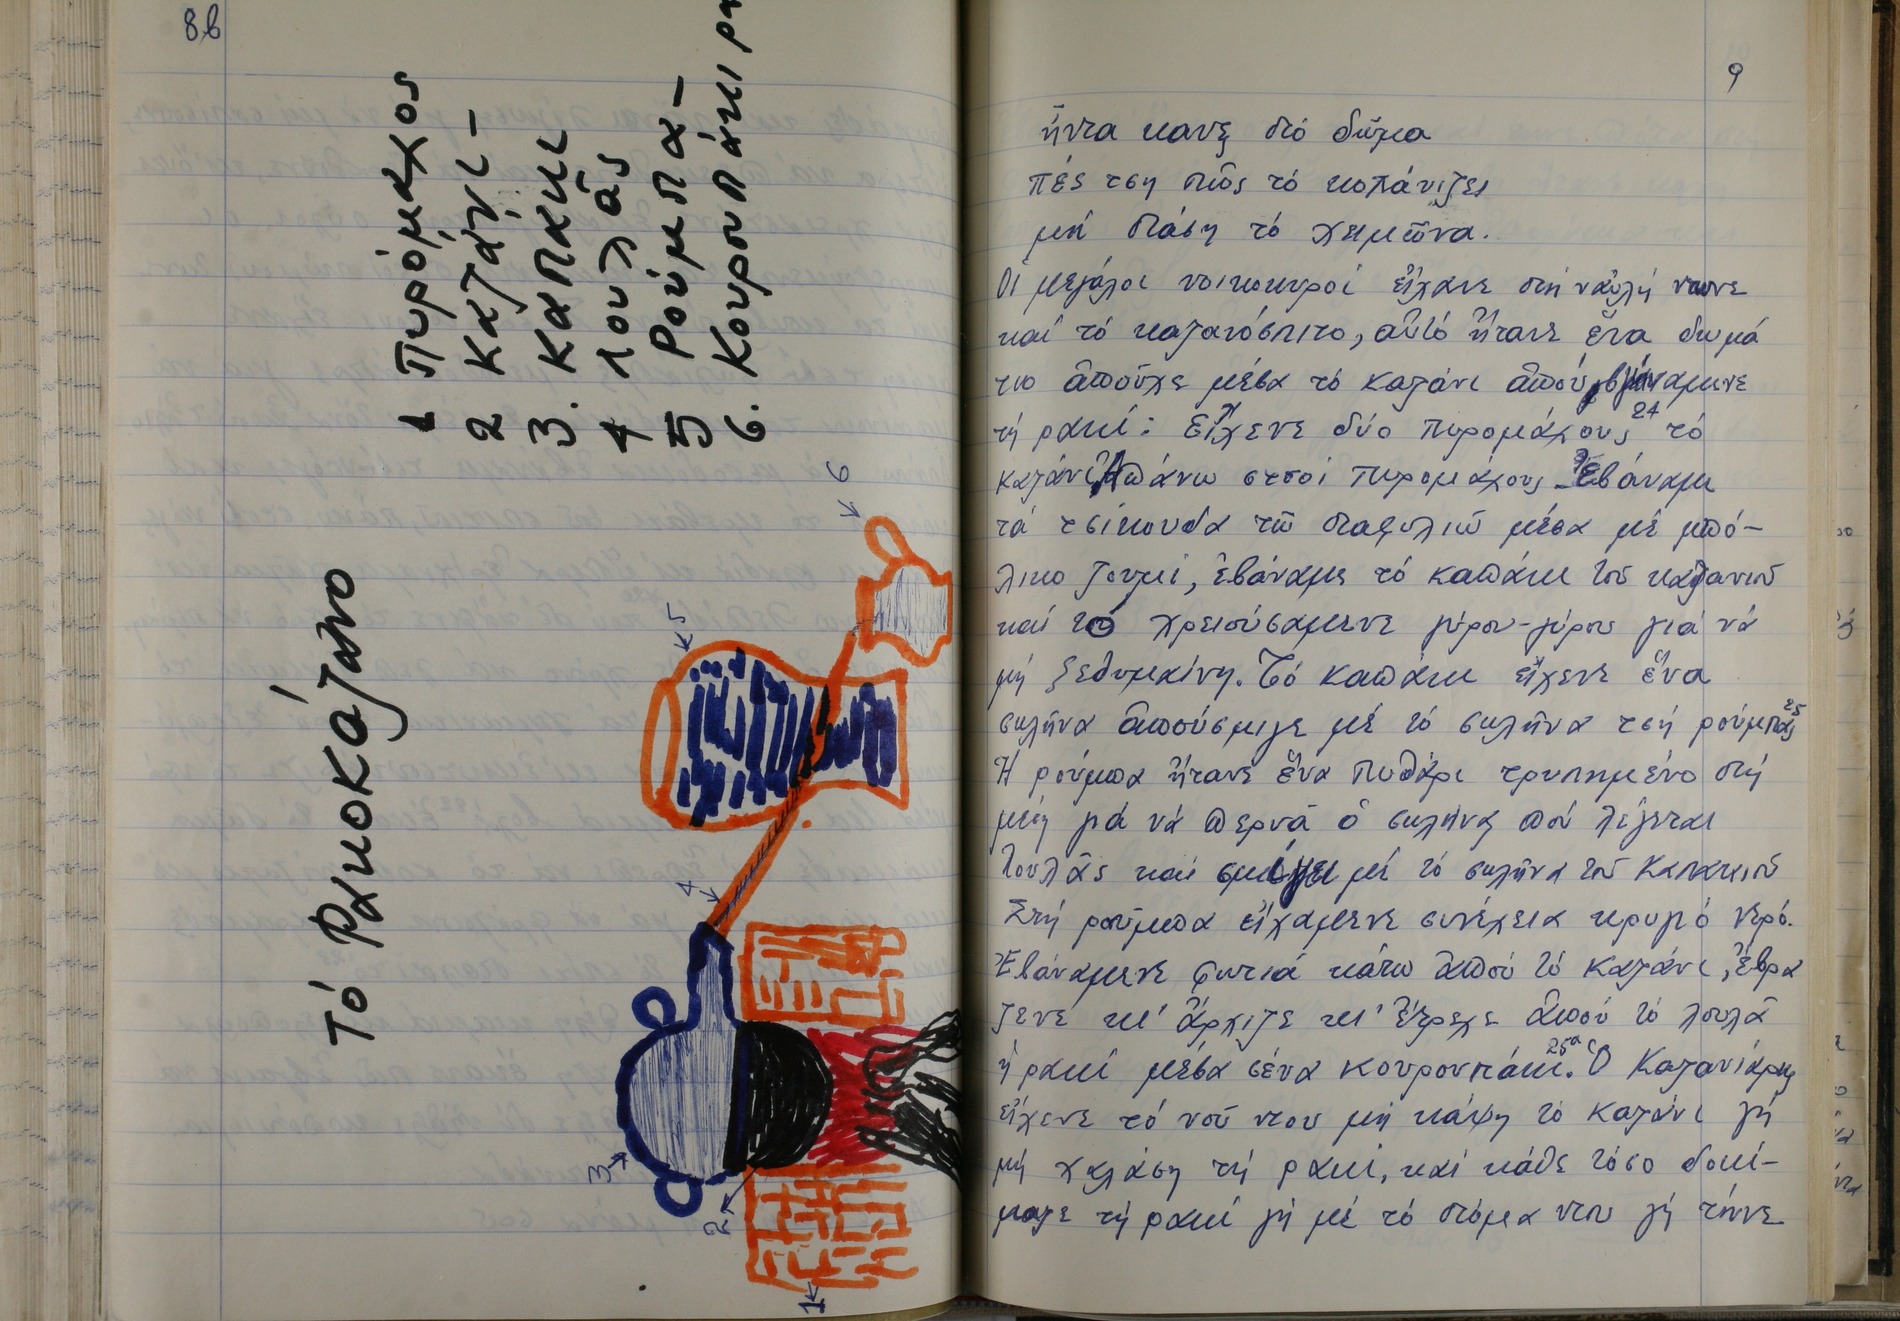 8β
Τό Ρακοκάζανο
1 Πυρόμαχος
2 Καζάνι-
3. Καπάκι
4 Λουλᾶς
5 Ρούμπα-
6. Κουρουπάκι
1
2
3
4
5
6
9
ἥντα κανς στό δῶμα
πές τση πῶς τό κοπάνιζει
μή στάση τό χειμῶνα.
Οἱ μεγάλοι νοικοκυροί εἴχανε στή ναὐλή ντωνε
καί τό καζανόσπιτο, αὐτό ἤτανε ἕνα δωμά
τιο ἀπούχε μέσα τό καζάνι ἀπού βγάναμενε
τή ρακί: Εἴχενε δύο πυρομάχους 24 τό
καζάνι Ἀπάνω στσοί πυρομάχους. Ἐβάναμε
τά τσίκουδα τῶ σταφυλιῶ μέσα μέ μπό-
λικο ζουμί, ἐβάναμε τό καπάκι τοῦ καζανιοῦ
καί τό χρειούσαμενε γύρου-γύρου γιά νά
μή ξεθυμαίνη. Τό καπάκι εἴχενε ἕνα
σωλῆνα ἀπούσμιγε μέ τό σωλῆνα τσή ρούμπας 25
Ἡ ρούμπα ἤτανε ἕνα πυθάρι τρυπημένο στή
μέση γιά νά περνᾶ ὁ σωλήνας πού λέγεται
λουλᾶς καί σμίγει μέ τό σωλῆνα τοῦ καπακιοῦ
Στή ρούμπα εἴχαμενε συνέχεια κρυγιό νερό.
Ἐβάναμενε φωτιά κάτω ἀπού τό καζάνι, ἔβρα
ζενε κι' ἄρχιζε κι' ἔτρεχε ἀπού τό λουλᾶ
ἡ ρακί μέσα σένα κουρουπάκι. 25α Ὁ Καζανιάρης
εἴχενε τό νοῦ ντου μή κάψη τό καζάνι γή
μή χαλάση τή ρακί, καί κάθε τόσο δοκί-
μαζε τή ρακί γή μέ τό στόμα ντου γή τήνε